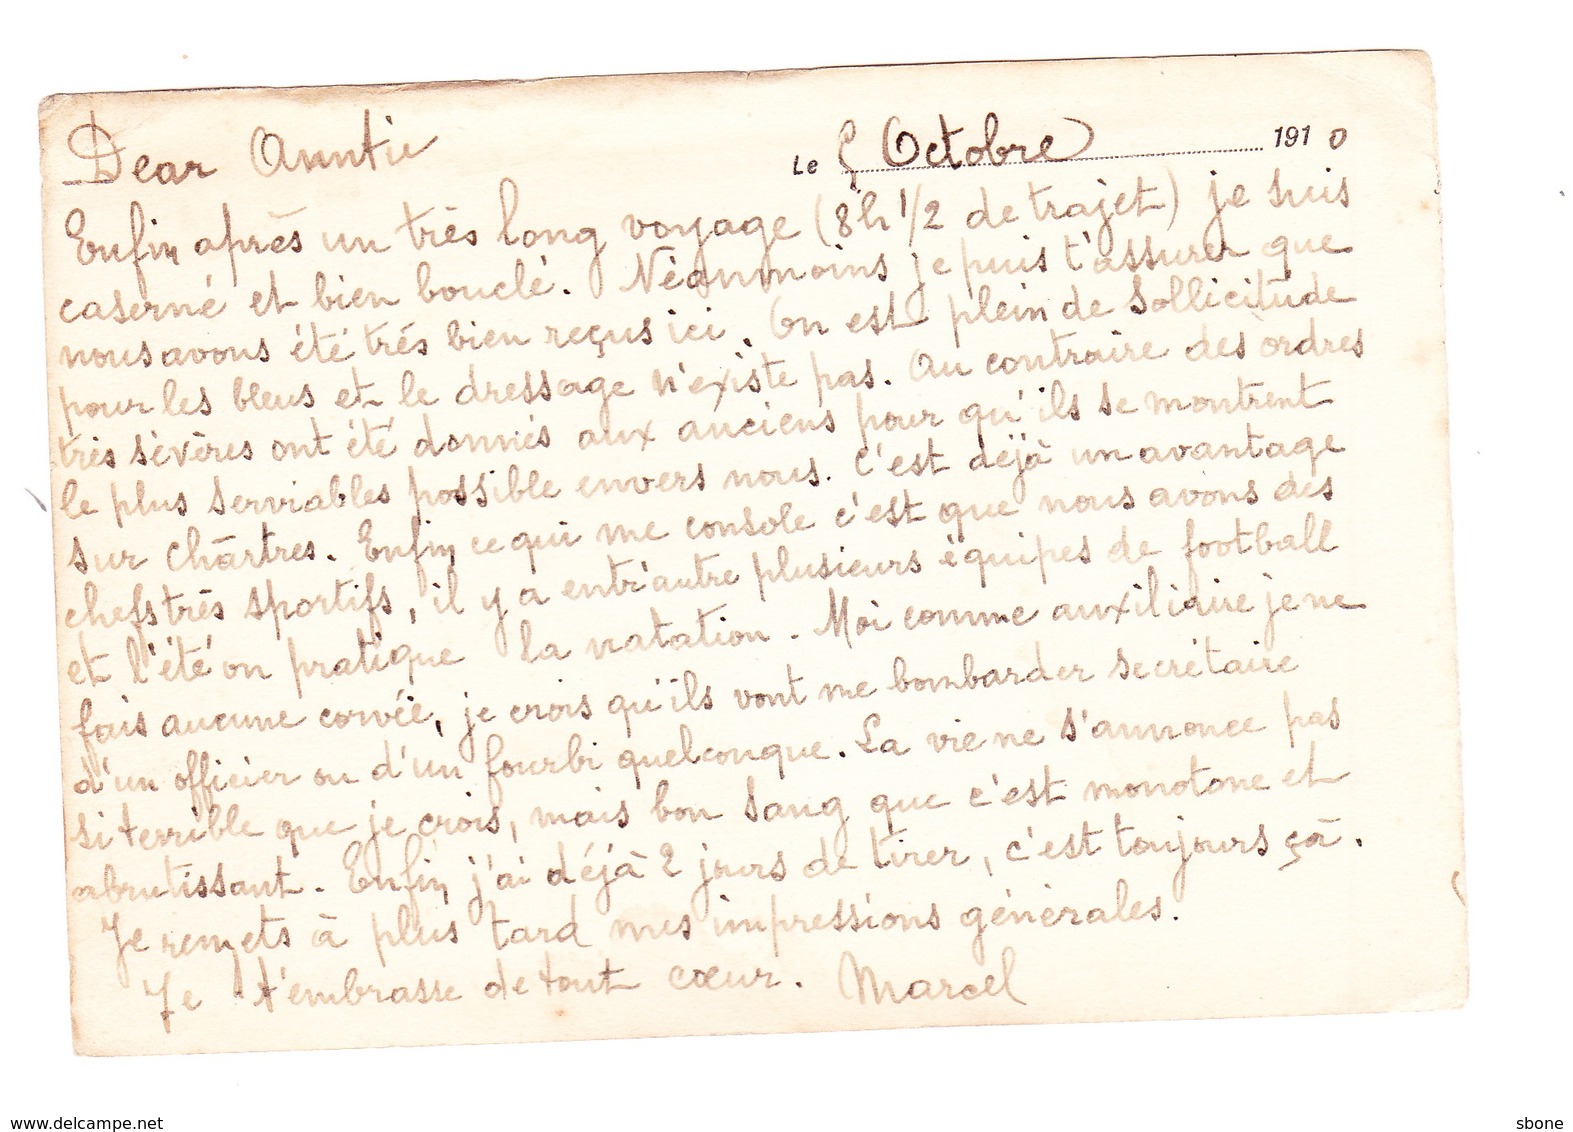 Dear Auntie
Le 8 Octobre 1910
Enfin après un très long voyage (8h 1/2 de trajet) je suis
caserné et bien bouclé. Néanmoins je puis t'assurer que
nous avons été très bien reçus ici. On est plein de sollicitude
pour les bleus et le dressage n'existe pas. Au contraire des ordres
très sévères ont été donnés aux anciens pour qu'ils se montrent
le plus serviables possible envers nous. C'est déjà un avantage
sur Chârtres. Enfin ce qui me console c'est que nous avons des
chefs très sportifs, il y a entr'autre plusieurs équipes de football
et l'été on pratique la natation. Moi comme auxiliaire je ne
fais aucune corvée, je crois qu'ils vont me bombarder secrétaire
d'un officier ou d'un fourbi quelconque. La vie ne s'annonce pas
si terrible que je crois, mais bon sang que c'est monotone et
abrutissant. Enfin j'ai déjà 2 jours de tirer, c'est toujours çà.
Je remets à plus tard mes impressions générales.
Je t'embrasse de tout cœur. Marcel
www.delcampe.net
sbone